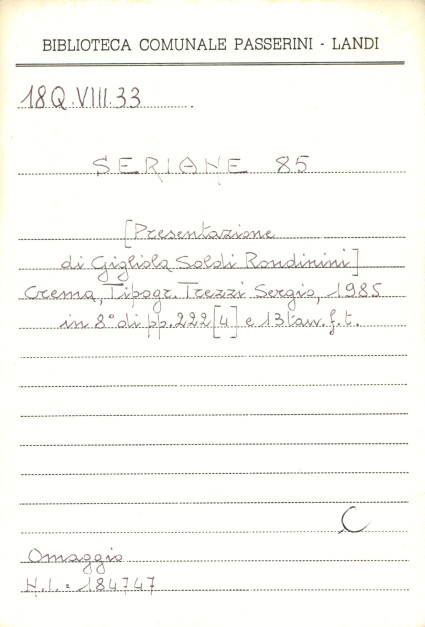 BIBLIOTECA COMUNALE PASSERINI - LANDI
18Q.VIII.33
SERIANE 85
[Presentazione
di Gigliola Soldi Rondinini]
Crema, Tipogr. Trezzi Sergio, 1985
in 8° di pp. 222 [4] e 13 tav. f. t.
C
Omaggio
N.I. = 184747